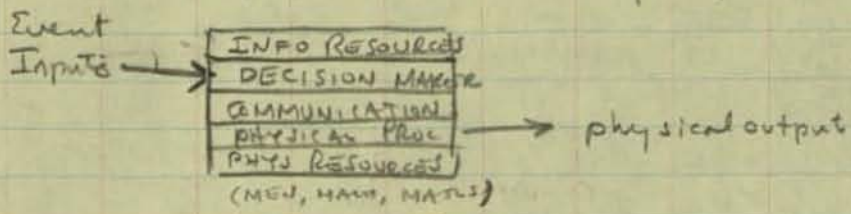 Event
Inputs
INFO RESOURCES
DECISION MAKER
COMMUNICATION
PHYSICAL PROC
physical output
PHYS RESOURCES
(MEN, MACH, MATLS)